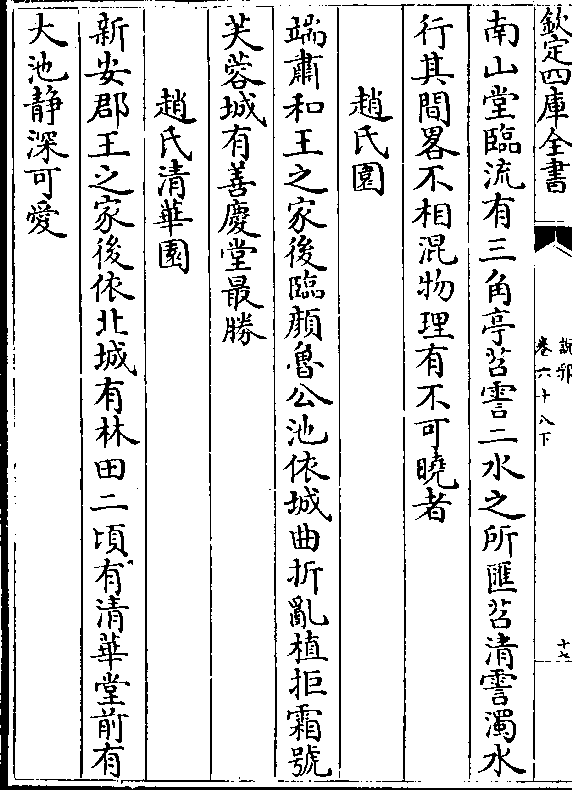 欽定四庫全書
說郛
卷六十八下
十七
南山堂臨流有三角亭苕霅二水之所匯苕清霅濁水
行其間畧不相混物理有不可曉者
趙氏園
端肅和王之家後臨顔魯公池依城曲折亂植拒霜號
芙蓉城有善慶堂最勝
趙氏清華園
新安郡王之家後依北城有林田二頃有清華堂前有
大池静深可愛